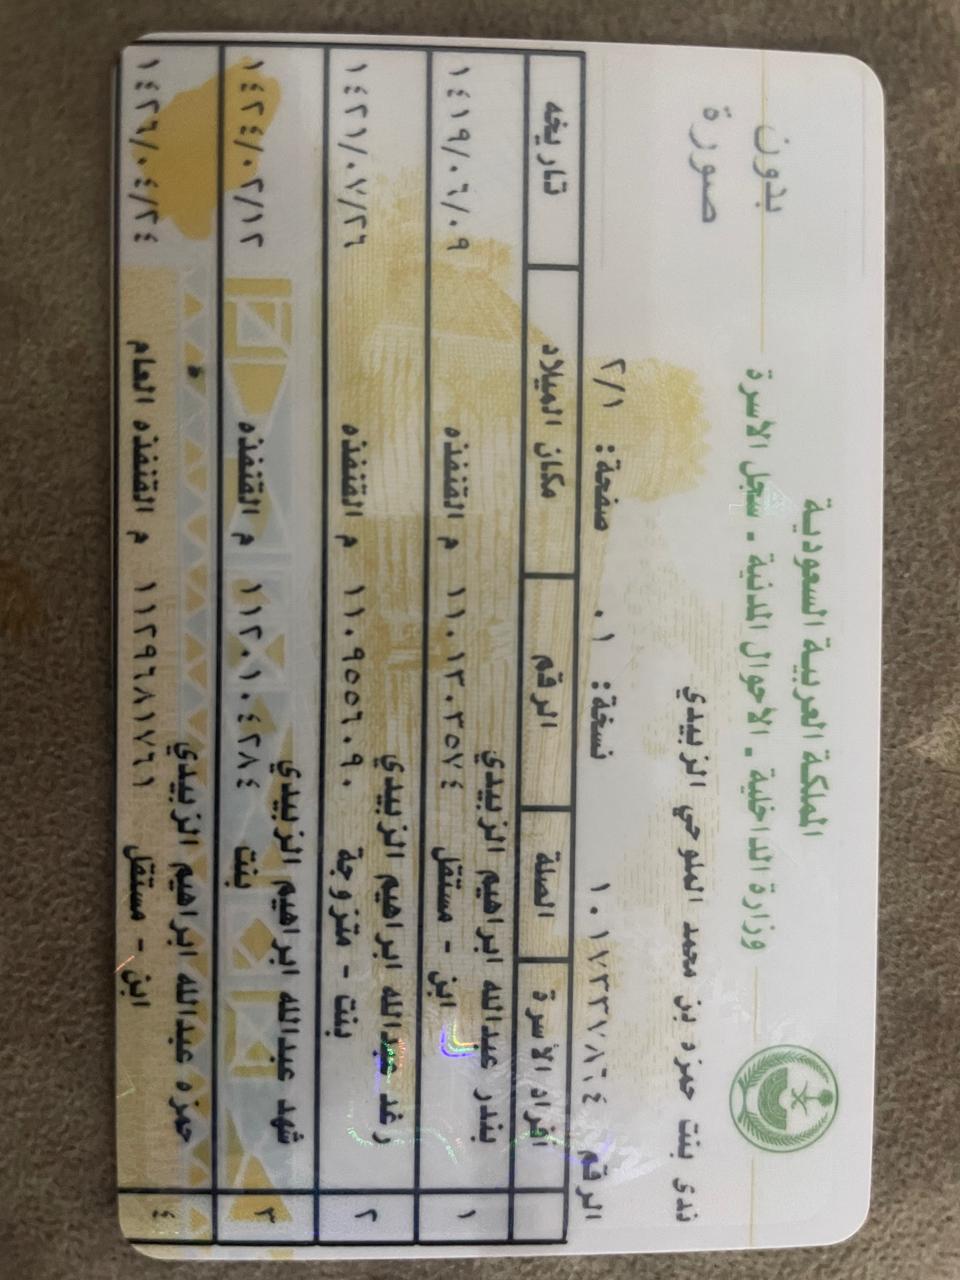 المملكة العربية السعودية
وزارة الداخلية - الأحوال المدنية - سجل الأسرة
بدون
صورة
ندى بنت حمزه بن محمد الملوحي الزبيدي
الرقم ١٠١٧٣٣٧٨٦٤ نسخة: ٠١ صفحة: ٢/١
افراد الأسرة الصلة الرقم مكان الميلاد تاريخه
١ بندر عبدالله ابراهيم الزبيدي
ابن - مستقل ١١٠١٣٠٣٥٧٤ م القنفذه ١٤١٩/٠٦/٠٩
٢ رغد عبدالله ابراهيم الزبيدي
بنت - متزوجة ١١٠٩٥٥٦٠٩٠ م القنفذه ١٤٢١/٠٧/٢٦
٣ شهد عبدالله ابراهيم الزبيدي
بنت ١١٢٠١٠٤٢٨٤ م القنفذه ١٤٢٤/٠٢/١٢
٤ حمزه عبدالله ابراهيم الزبيدي
ابن - مستقل ١١٢٩٦٨١٧٦١ م القنفذه العام ١٤٢٦/٠٤/٢٤